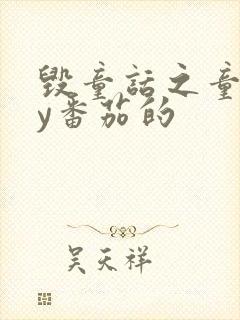 毁童话之童
y番茄的
吴天祥